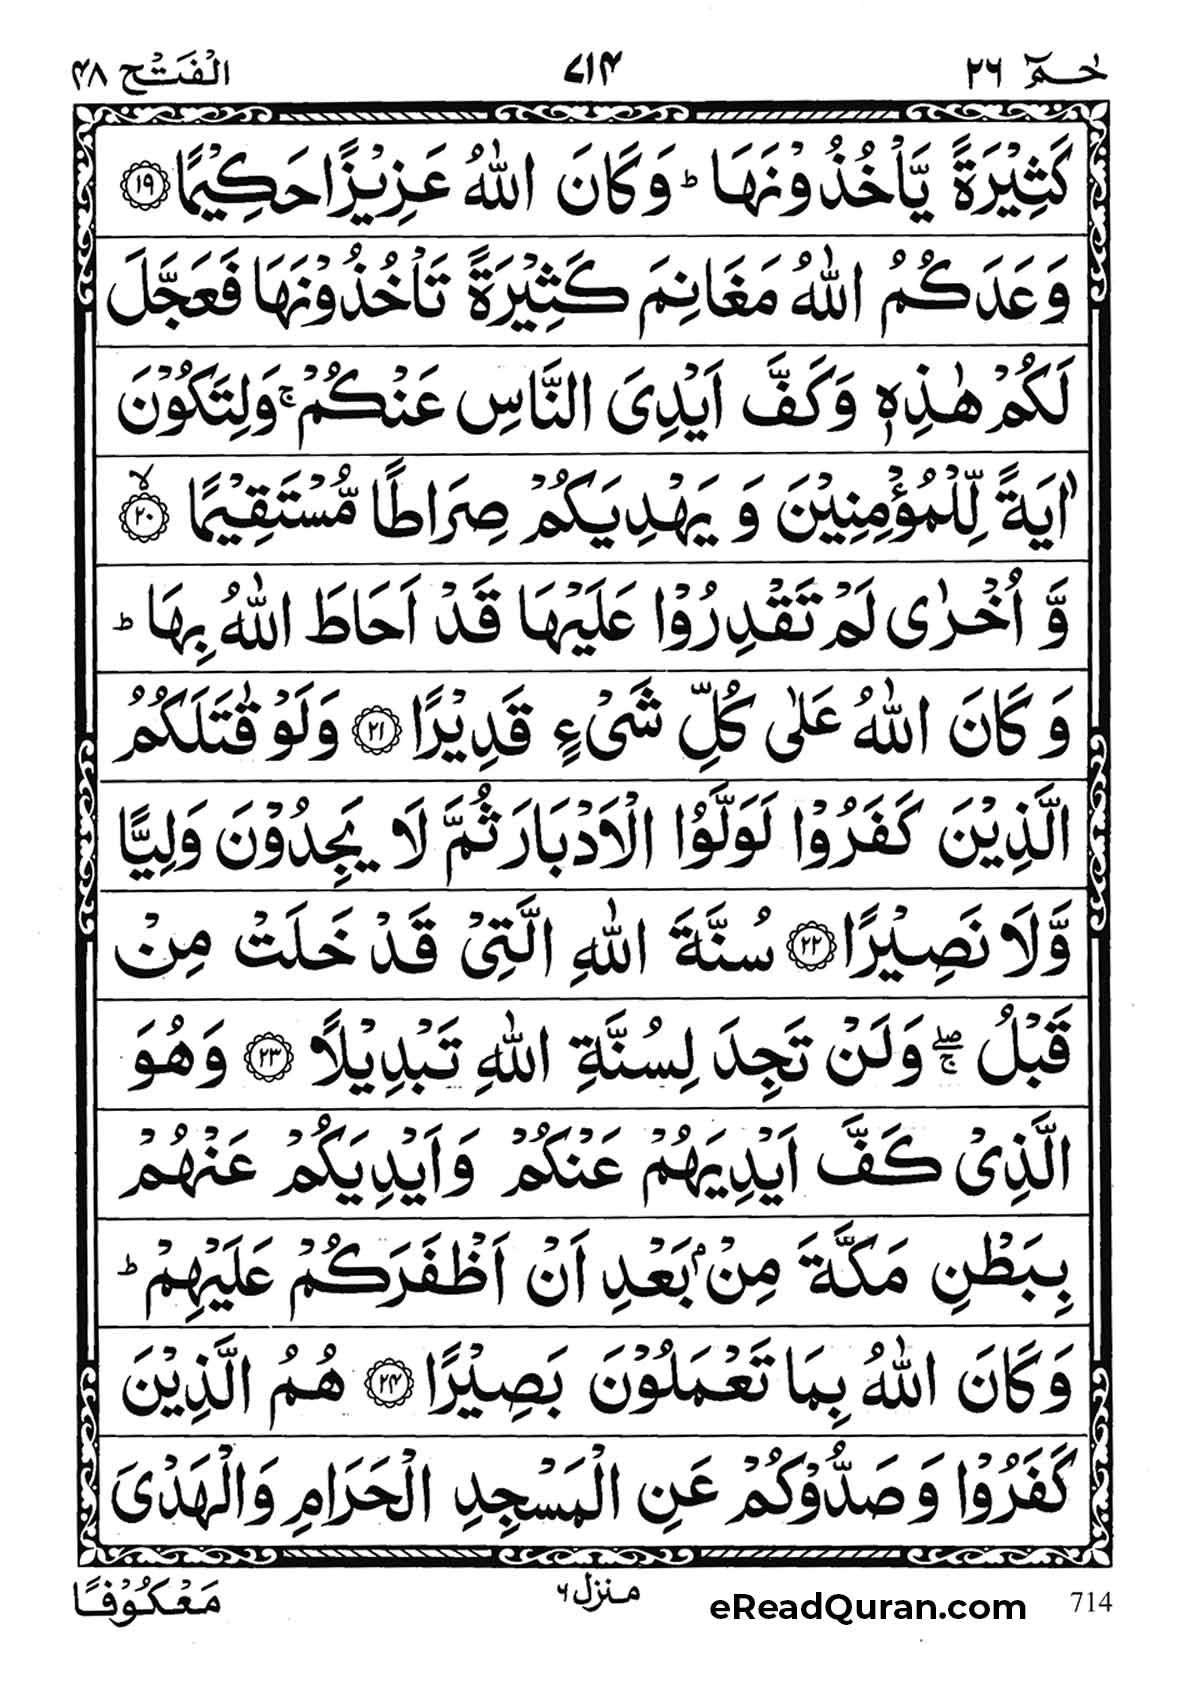 حٰمٓ ٢٦
٧١٤
الْفَتْح ٤٨
كَثِيْرَةً يَّاْخُذُوْنَهَا ؕ وَكَانَ اللّٰهُ عَزِيْزًا حَكِيْمًا ۝١٩
وَعَدَكُمُ اللّٰهُ مَغَانِمَ كَثِيْرَةً تَاْخُذُوْنَهَا فَعَجَّلَ
لَكُمْ هٰذِهٖ وَكَفَّ اَيْدِىَ النَّاسِ عَنْكُمْ ۚ وَلِتَكُوْنَ
اٰيَةً لِّلْمُؤْمِنِيْنَ وَ يَهْدِيَكُمْ صِرَاطًا مُّسْتَقِيْمًا ۙ۝٢٠
وَّ اُخْرٰى لَمْ تَقْدِرُوْا عَلَيْهَا قَدْ اَحَاطَ اللّٰهُ بِهَا ؕ
وَ كَانَ اللّٰهُ عَلٰى كُلِّ شَىْءٍ قَدِيْرًا ۝٢١ وَلَوْ قٰتَلَكُمُ
الَّذِيْنَ كَفَرُوْا لَوَلَّوُا الْاَدْبَارَ ثُمَّ لَا يَجِدُوْنَ وَلِيًّا
وَّلَا نَصِيْرًا ۝٢٢ سُنَّةَ اللّٰهِ الَّتِىْ قَدْ خَلَتْ مِنْ
قَبْلُ ۖۚ وَلَنْ تَجِدَ لِسُنَّةِ اللّٰهِ تَبْدِيْلًا ۝٢٣ وَهُوَ
الَّذِىْ كَفَّ اَيْدِيَهُمْ عَنْكُمْ وَاَيْدِيَكُمْ عَنْهُمْ
بِبَطْنِ مَكَّةَ مِنْۢ بَعْدِ اَنْ اَظْفَرَكُمْ عَلَيْهِمْ ؕ
وَكَانَ اللّٰهُ بِمَا تَعْمَلُوْنَ بَصِيْرًا ۝٢٤ هُمُ الَّذِيْنَ
كَفَرُوْا وَصَدُّوْكُمْ عَنِ الْمَسْجِدِ الْحَرَامِ وَالْهَدْىَ
مَعْكُوْفًا
منزل ٦
eReadQuran.com
714